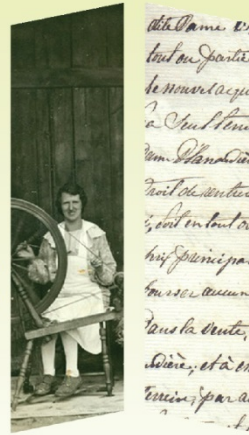 dite Dame
tout ou partie
le nouvel acqu
à Seul l
Dame Blanudiè
Droit de rentre
soit en tout ou
principa
ourser aucun
Dans la vente,
dière, et à
Terrein, par a